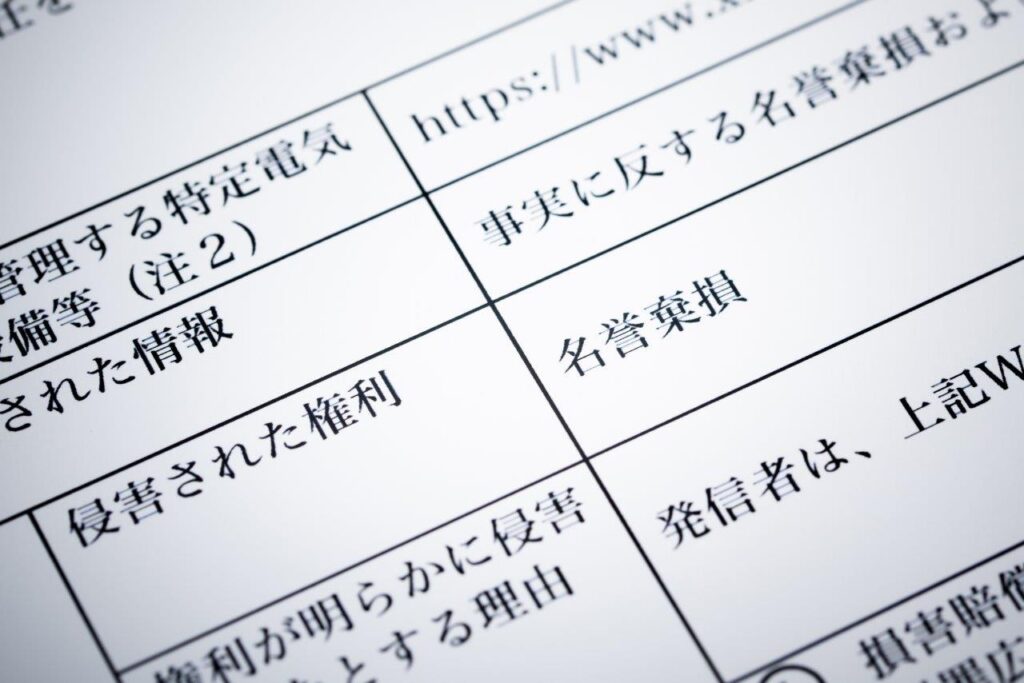 https://www.x
管理する特定電気
備等（注２）
事実に反する名誉棄損およ
された情報
侵害された権利
名誉棄損
権利が明らかに侵害
とする理由
発信者は、上記W
損害賠償